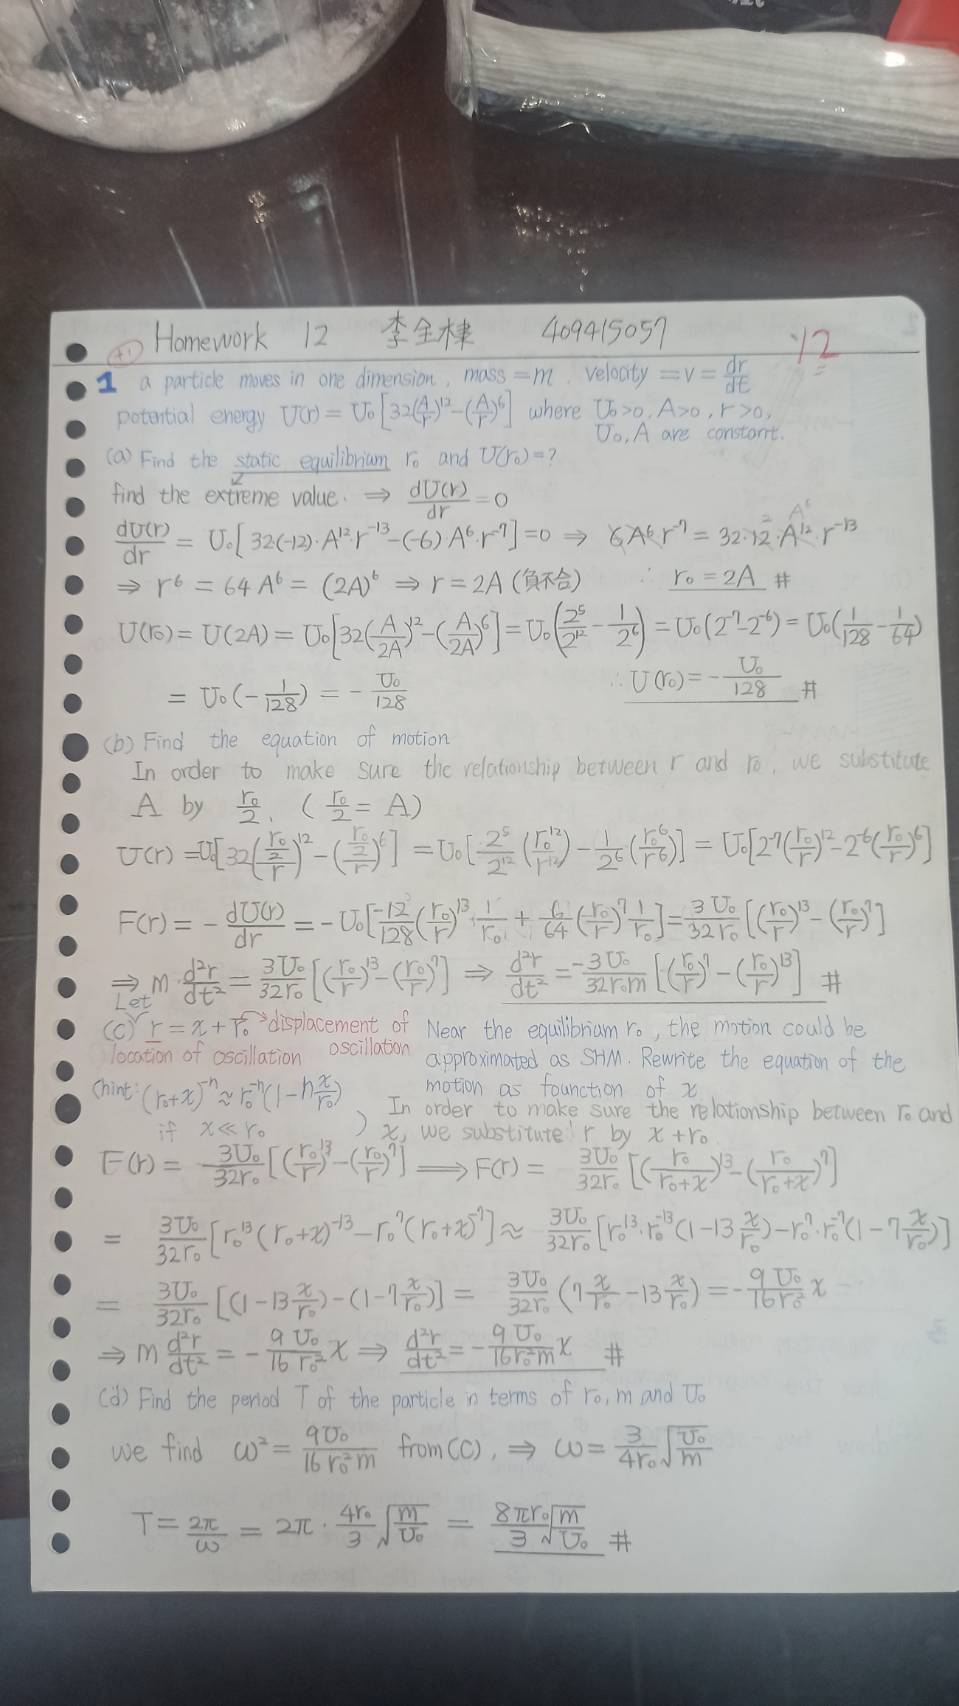 Homework 12 李全棟 409415057 12
+1
1 a particle moves in one dimension, mass = m. velocity = v = dr/dt
potential energy U(r) = U₀[32(A/r)¹² - (A/r)⁶] where U₀>0, A>0, r>0,
U₀, A are constant.
(a) Find the static equilibrium r₀ and U(r₀) = ?
find the extreme value. ⇒ dU(r)/dr = 0
dU(r)/dr = U₀[32(-12)·A¹²r⁻¹³ - (-6)A⁶·r⁻⁷] = 0 ⇒ 6A⁶r⁻⁷ = 32·12·A¹²·r⁻¹³
⇒ r⁶ = 64A⁶ = (2A)⁶ ⇒ r = 2A (負不合) ∴ r₀ = 2A #
U(r₀) = U(2A) = U₀[32(A/2A)¹² - (A/2A)⁶] = U₀(2⁵/2¹² - 1/2⁶) = U₀(2⁻⁷-2⁻⁶) = U₀(1/128 - 1/64)
= U₀(-1/128) = - U₀/128 ∴ U(r₀) = - U₀/128 #
(b) Find the equation of motion
In order to make sure the relationship between r and r₀, we substitute
A by r₀/2. (r₀/2 = A)
U(r) = U₀[32((r₀/2)/r)¹² - ((r₀/2)/r)⁶] = U₀[2⁵/2¹²(r₀¹²/r¹²) - 1/2⁶(r₀⁶/r⁶)] = U₀[2⁻⁷(r₀/r)¹² - 2⁻⁶(r₀/r)⁶]
F(r) = - dU(r)/dr = -U₀[-12/128(r₀/r)¹³·1/r₀ + 6/64(r₀/r)⁷ 1/r₀] = 3U₀/32r₀[(r₀/r)¹³ - (r₀/r)⁷]
⇒ m·d²r/dt² = 3U₀/32r₀[(r₀/r)¹³ - (r₀/r)⁷] ⇒ d²r/dt² = -3U₀/32r₀m[(r₀/r)⁷ - (r₀/r)¹³] #
Let
(c) r = x + r₀ → displacement of oscillation
location of oscillation
Near the equilibriam r₀, the motion could be
approximated as SHM. Rewrite the equation of the
motion as founction of x.
(hint: (r₀+x)⁻ⁿ ≈ r₀⁻ⁿ(1-n x/r₀)
if x ≪ r₀ )
In order to make sure the relationship between r₀ and
x, we substitute r by x+r₀
F(r) = 3U₀/32r₀[(r₀/r)¹³ - (r₀/r)⁷] ⟹ F(r) = 3U₀/32r₀[(r₀/r₀+x)¹³ - (r₀/r₀+x)⁷]
= 3U₀/32r₀[r₀¹³(r₀+x)⁻¹³ - r₀⁷(r₀+x)⁻⁷] ≈ 3U₀/32r₀[r₀¹³·r₀⁻¹³(1-13 x/r₀) - r₀⁷·r₀⁻⁷(1-7 x/r₀)]
= 3U₀/32r₀[(1-13 x/r₀) - (1-7 x/r₀)] = 3U₀/32r₀(7 x/r₀ - 13 x/r₀) = - 9U₀/16r₀² x
⇒ m d²r/dt² = - 9U₀/16r₀² x ⇒ d²r/dt² = - 9U₀/16r₀²m x #
(d) Find the period T of the particle in terms of r₀, m and U₀
we find ω² = 9U₀/16r₀²m from (c), ⇒ ω = 3/4r₀ √(U₀/m)
T = 2π/ω = 2π · 4r₀/3 √(m/U₀) = 8πr₀/3 √(m/U₀) #